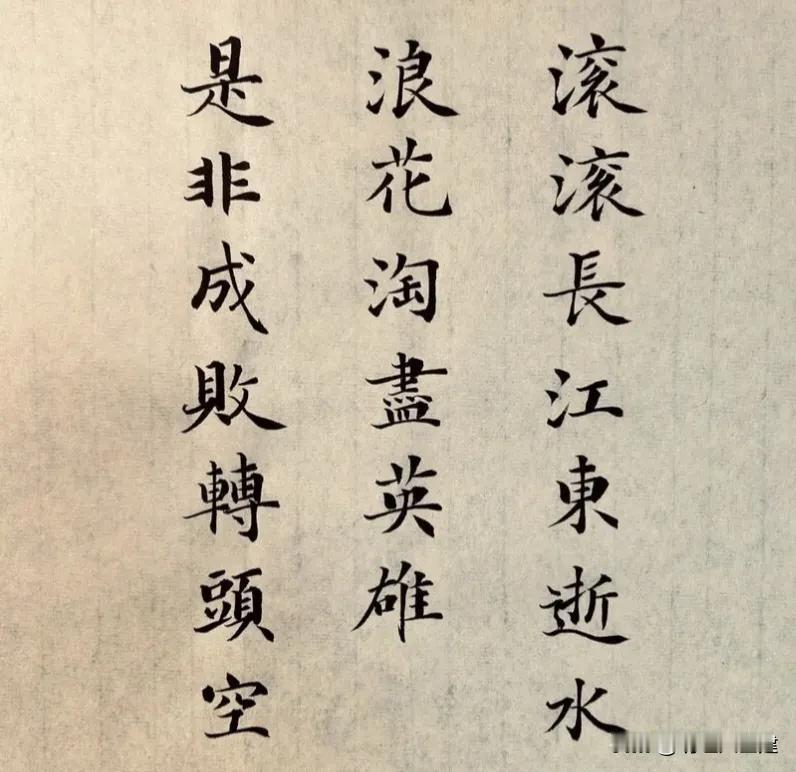 滚滚長江東逝水
浪花淘盡英雄
是非成敗轉頭空